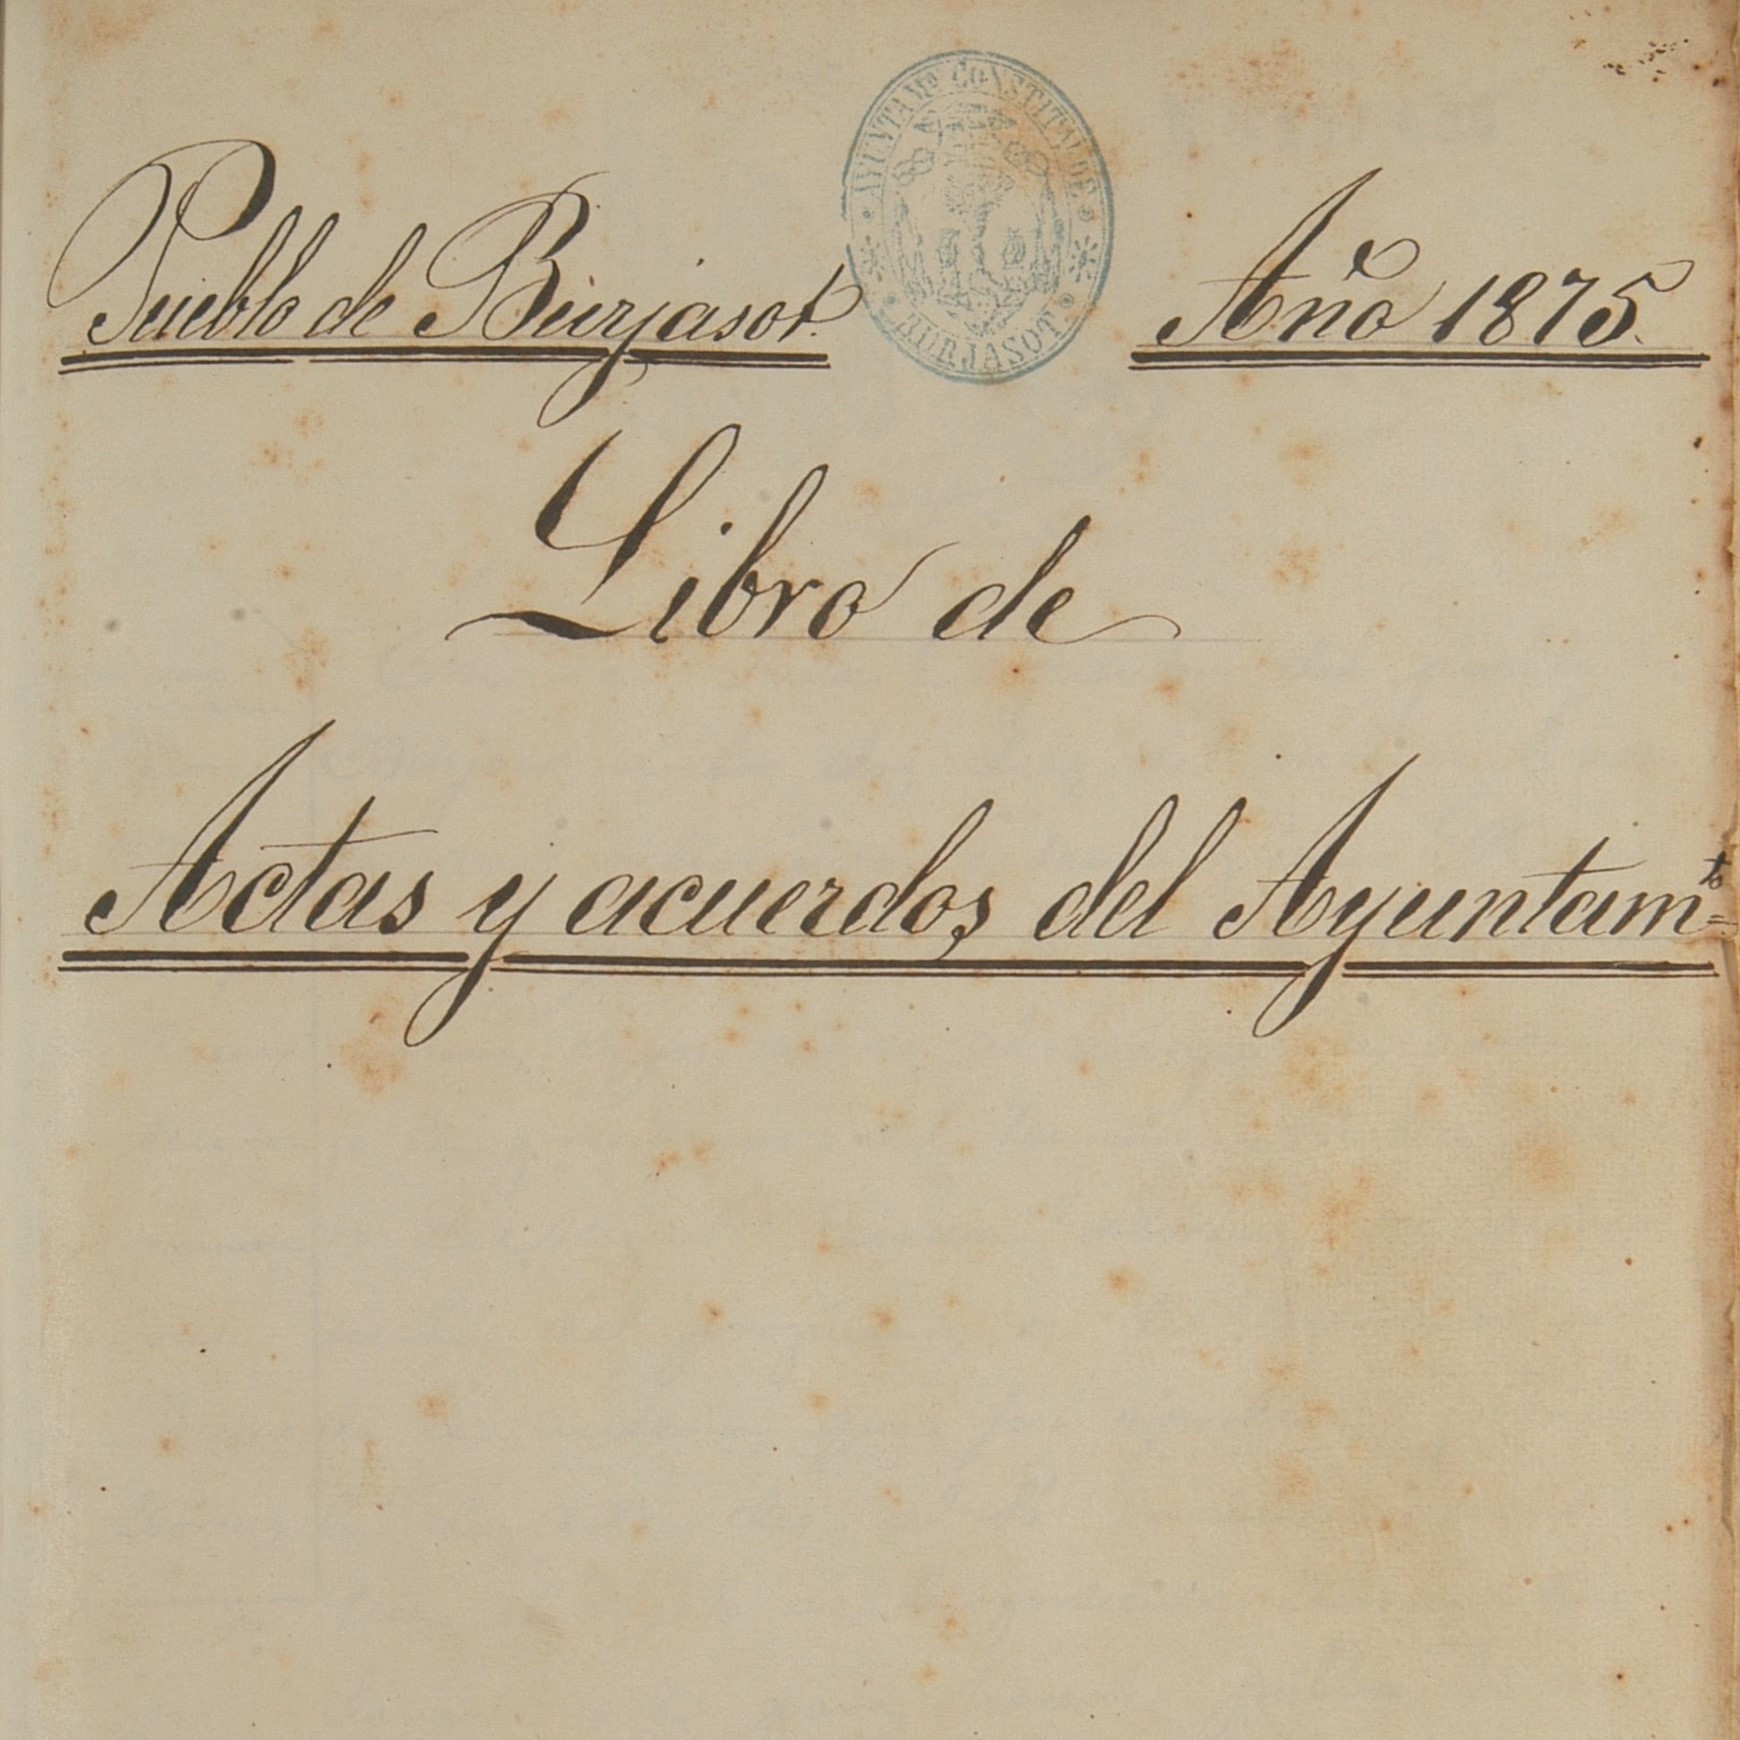 Pueblo de Burjasot.
AYUNTAMº CONSTITAL DE
BURJASOT
Año 1875.
Libro de
Actas y acuerdos del Ayuntamto